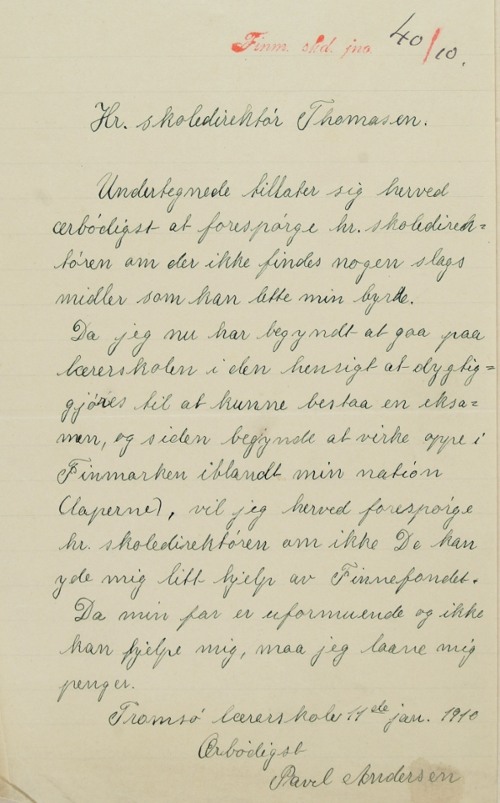 Finm. skd. jno. 40/10.
Hr. skoledirektór Thomasen.
Undertegnede tillater sig herved
ærbódigst at forespórge hr. skoledirek=
tóren om der ikke findes nogen slags
midler som kan lette min byrde.
Da jeg nu har begyndt at gaa paa
lærerskolen i den hensigt at dygtig=
gjóres til at kunne bestaa en eksa-
men, og siden begynde at virke oppe i
Finmarken iblandt min nation
(laperne), vil jeg herved forespórge
hr. skoledirektóren om ikke De kan
yde mig litt hjelp av Finnefondet.
Da min far er uformuende og ikke
kan hjelpe mig, maa jeg laane mig
penger.
Tromsó lærerskole 11te jan. 1910
Ærbódigst
Pavel Andersen